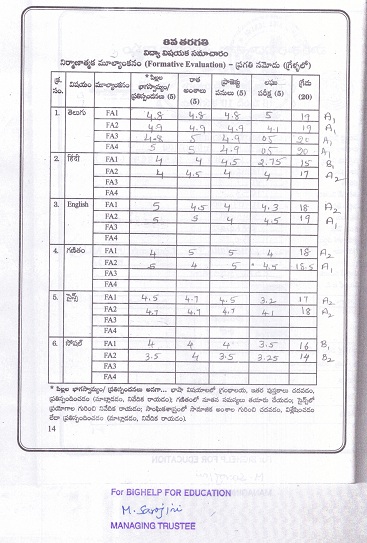 6వ తరగతి
విద్యా విషయక సమాచారం
నిర్మాణాత్మక మూల్యాంకనం (Formative Evaluation) – ప్రగతి నమోదు (గ్రేళ్ళలో)
క్ర. సం. విషయం మూల్యాంకనం * పిల్లల భాగస్వామ్యం/ ప్రతిస్పందనలు (5) రాత అంశాలు (5) ప్రాజెక్టు పనులు (5) లఘు పరీక్ష (5) గ్రేడు (20)
1. తెలుగు FA1 4.8 4.8 4.8 5 19 A1
FA2 4.9 4.9 4.9 4.1 19 A1
FA3 4.8 5 4.9 05 20 A1
FA4 5 5 4.9 05 20 A1
2. हिंदी FA1 4 4 4.5 2.75 15 B1
FA2 4 4.5 4 4 17 A2
FA3
FA4
3. English FA1 5 4.5 4 4.3 18 A2
FA2 5 5 4 4.5 19 A1
FA3
FA4
4. గణితం FA1 4 5 5 4 18 A2
FA2 5 4 5 4.5 18.5 A1
FA3
FA4
5. సైన్స్ FA1 4.5 4.7 4.5 3.2 17 A2
FA2 4.7 4.7 4.7 4.1 18 A2
FA3
FA4
6. సోషల్ FA1 4 4 4 3.5 16 B1
FA2 3.5 4 3.5 3.25 14 B2
FA3
FA4
* పిల్లల భాగస్వామ్యం/ ప్రతిస్పందనలు అనగా... భాషా విషయాలలో గ్రంథాలయ, ఇతర పుస్తకాలు చదవడం,
ప్రతిస్పందించడం (మాట్లాడడం, నివేదిక రాయడం); గణితంలో నూతన సమస్యలు తయారు చేయడం; సైన్స్‌లో
ప్రయోగాల గురించి నివేదిక రాయడం; సాంఘికశాస్త్రంలో సామాజిక అంశాల గురించి చదవడం, విశ్లేషించడం
లేదా ప్రతిస్పందించడం (మాట్లాడడం, నివేదిక రాయడం).
14
For BIGHELP FOR EDUCATION
M. Sarojini
MANAGING TRUSTEE